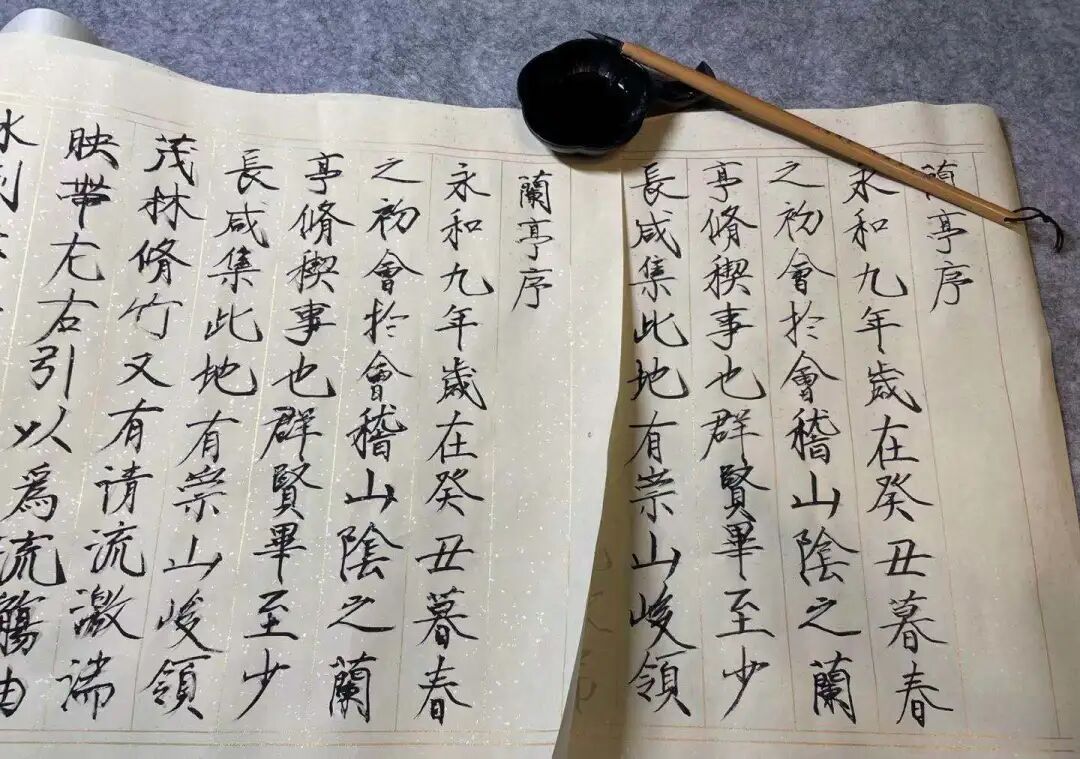 蘭亭序
永和九年歲在癸丑暮春
之初會扵會稽山陰之蘭
亭脩稧事也群賢畢至少
長咸集此地有崇山峻領
蘭亭序
永和九年歲在癸丑暮春
之初會扵會稽山陰之蘭
亭脩稧事也群賢畢至少
長咸集此地有崇山峻領
茂林脩竹又有清流激湍
映帶左右引以爲流觴曲
水列